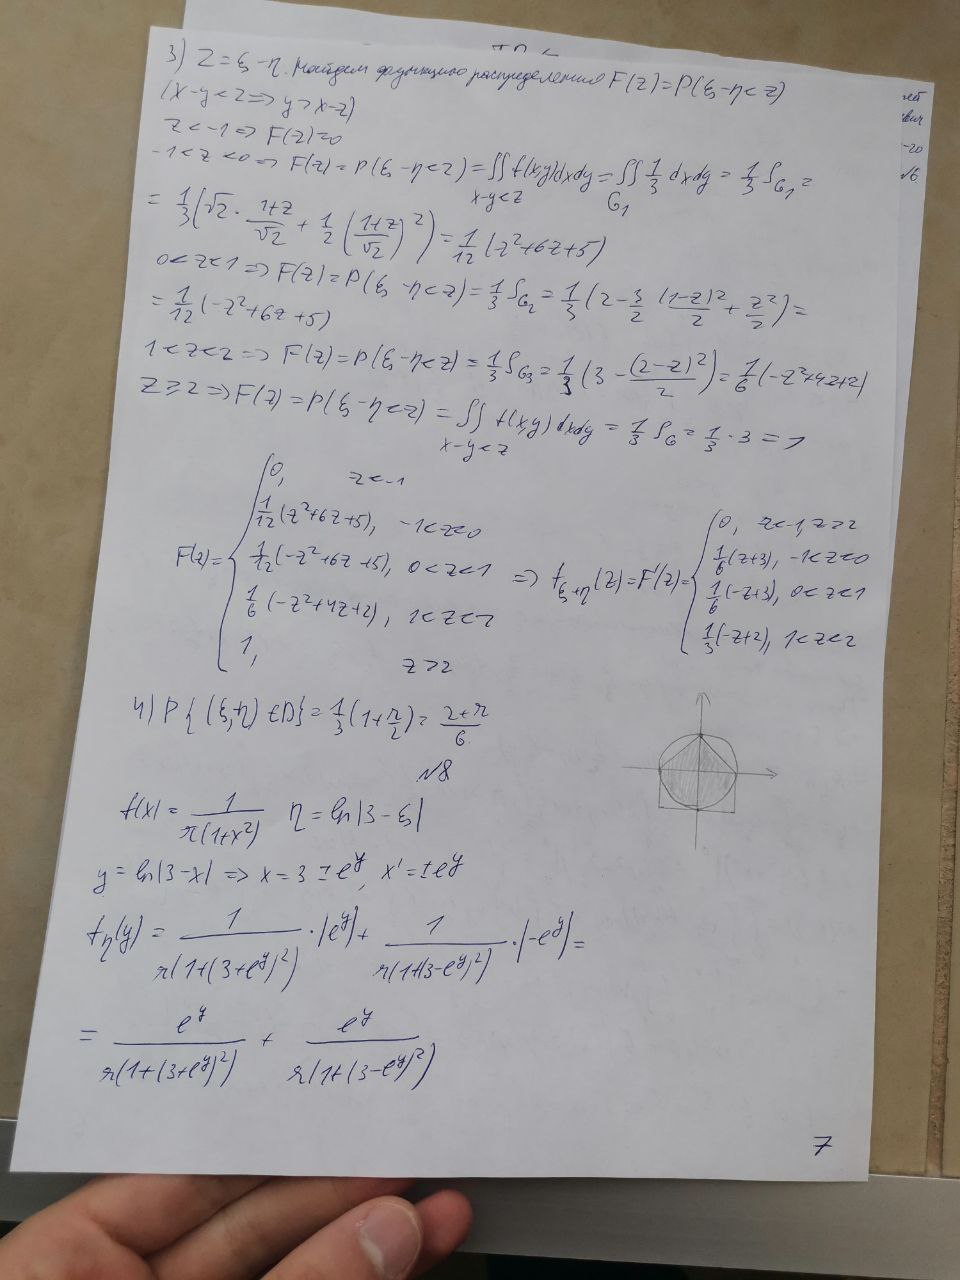 3) Z = ξ - η. Найдем функцию распределения F(z) = P(ξ - η < z)
(x - y < z => y > x - z)
z < -1 => F(z) = 0
-1 < z < 0 => F(z) = P(ξ - η < z) = ∬_{x-y<z} f(x,y)dxdy = ∬_{G₁} 1/3 dxdy = 1/3 S_{G₁} =
= 1/3 (√2 · (1+z)/√2 + 1/2 ((1+z)/√2)²) = 1/12 (z² + 6z + 5)
0 < z < 1 => F(z) = P(ξ - η < z) = 1/3 S_{G₂} = 1/3 (2 - 3/2 (1-z)²/2 + z²/2) =
= 1/12 (-z² + 6z + 5)
1 < z < 2 => F(z) = P(ξ - η < z) = 1/3 S_{G₃} = 1/3 (3 - (2-z)²/2) = 1/6 (-z² + 4z + 2)
z ≥ 2 => F(z) = P(ξ - η < z) = ∬_{x-y<z} f(x,y)dxdy = 1/3 S_G = 1/3 · 3 = 1
F(z) = { 0, z < -1
1/12 (z² + 6z + 5), -1 < z < 0
1/12 (-z² + 6z + 5), 0 < z < 1
1/6 (-z² + 4z + 2), 1 < z < 2
1, z > 2
=> f_{ξ+η}(z) = F'(z) = { 0, z < -1, z > 2
1/6 (z+3), -1 < z < 0
1/6 (-z+3), 0 < z < 1
1/3 (-z+2), 1 < z < 2
4) P{(ξ,η) ∈ D} = 1/3 (1 + π/2) = (2+π)/6
№8
f(x) = 1/(π(1+x²)) η = ln|3 - ξ|
y = ln|3-x| => x = 3 ± e^y, x' = ± e^y
f_η(y) = 1/(π(1+(3+e^y)²)) · |e^y| + 1/(π(1+(3-e^y)²)) · |-e^y| =
= e^y/(π(1+(3+e^y)²)) + e^y/(π(1+(3-e^y)²))
7
-20
№6